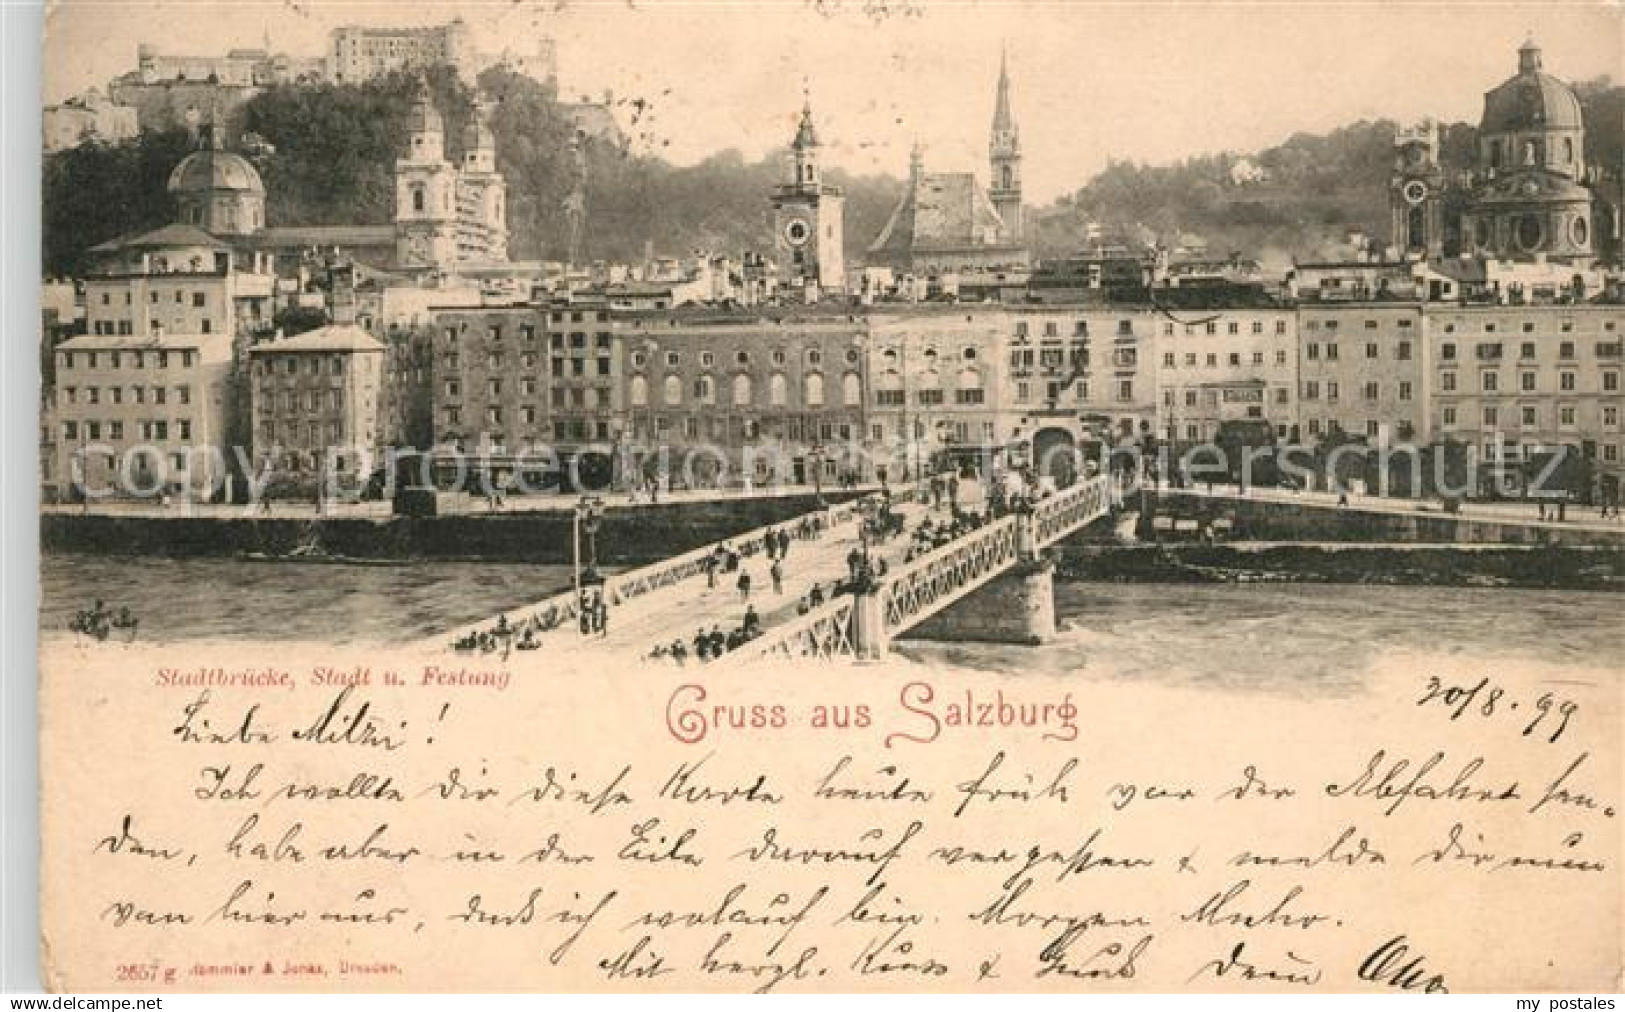 copy protection Kopierschutz
Stadtbrücke, Stadt u. Festung
Gruss aus Salzburg
30/8. 99
Liebe Mitzi!
Ich wollte dir diese Karte heute früh vor der Abfahrt sen-
den, habe aber in der Eile darauf vergessen & melde dir nun
von hier aus, daß ich wohlauf bin. Morgen Mehr.
Mit herzl. Kuss & Gruß Dein Otto
2657 g Römmler & Jonas, Dresden.
www.delcampe.net
my_postales